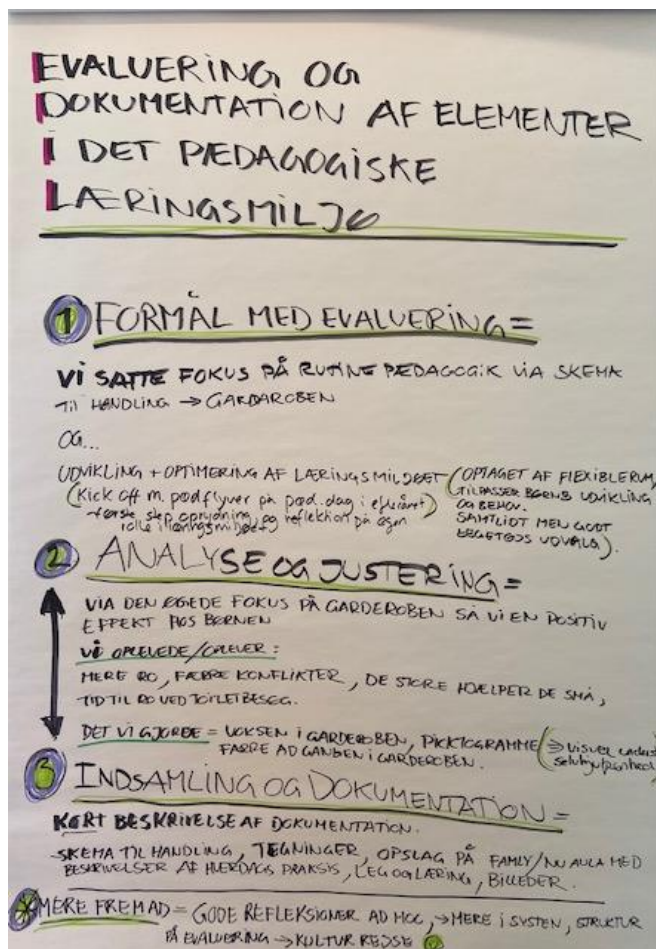 EVALUERING OG
DOKUMENTATION AF ELEMENTER
I DET PÆDAGOGISKE
LÆRINGSMILJØ
1 FORMÅL MED EVALUERING =
VI SATTE FOKUS PÅ RUTINE PÆDAGOGIK VIA SKEMA
TIL HANDLING → GARDAROBEN
OG...
UDVIKLING + OPTIMERING AF LÆRINGSMILJØET (OPTAGET AF FLEXIBLE RUM,
TILPASSER BØRNS UDVIKLING
OG BEHOV.
SAMTLIDT MEN GODT
LEGETØJS UDVALG).
(Kick off m. pædflyver på pæd. dag i efteråret)
første step oprydning og reflektion på egen
rolle i læringsmiljøet
2 ANALYSE OG JUSTERING =
VIA DEN ØGEDE FOKUS PÅ GARDEROBEN SÅ VI EN POSITIV
EFFEKT HOS BØRNEN
VI OPLEVEDE/OPLEVER:
MERE RO, FÆRRE KONFLIKTER, DE STORE HJÆLPER DE SMÅ,
TID TIL RO VED TOILETBESØG.
DET VI GJORDE = VOKSEN I GARDEROBEN, PICKTOGRAMME (⇒ visuel
FÆRRE AD GANGEN I GARDEROBEN.
3 INDSAMLING OG DOKUMENTATION =
KORT BESKRIVELSE AF DOKUMENTATION.
SKEMA TIL HANDLING, TEGNINGER, OPSLAG PÅ FAMLY/NU AULA MED
BESKRIVELSER AF HVERDAGS PRAKSIS, LEG OG LÆRING, BILLEDER.
* MERE FREMAD = GODE REFLEKSIONER AD HOC, → MERE I SYSTEN, STRUKTUR
PÅ EVALUERING → KULTUR REJSE